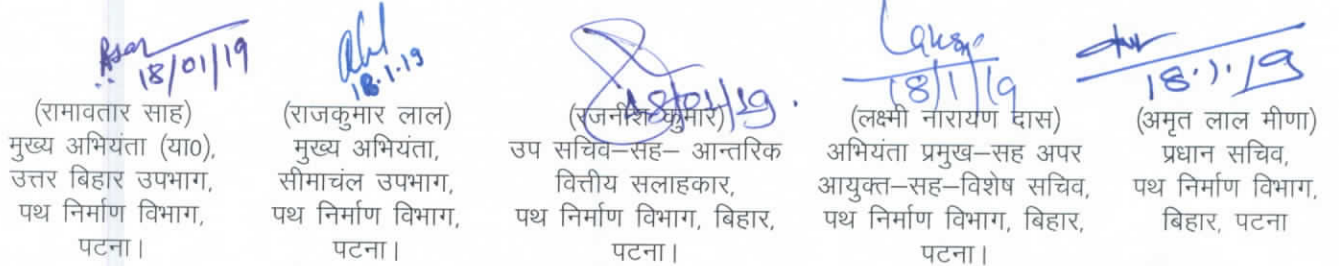 18/01/19
18.1.19
18/01/19.
18/1/19
18.1.19
(रामावतार साह)
मुख्य अभियंता (या0),
उत्तर बिहार उपभाग,
पथ निर्माण विभाग,
पटना।
(राजकुमार लाल)
मुख्य अभियंता,
सीमाचंल उपभाग,
पथ निर्माण विभाग,
पटना।
(रजनीश कुमार)
उप सचिव–सह– आन्तरिक
वित्तीय सलाहकार,
पथ निर्माण विभाग, बिहार,
पटना।
(लक्ष्मी नारायण दास)
अभियंता प्रमुख–सह अपर
आयुक्त–सह–विशेष सचिव,
पथ निर्माण विभाग, बिहार,
पटना।
(अमृत लाल मीणा)
प्रधान सचिव,
पथ निर्माण विभाग,
बिहार, पटना